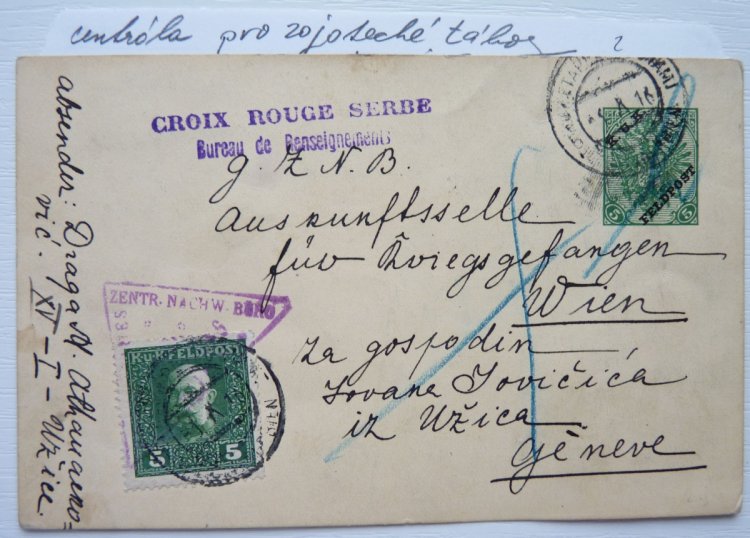 centrála pro zajatecké tábor ?
CROIX ROUGE SERBE
Bureau de Renseignements
G. Z. N. B.
Auskunftsselle
für Kriegsgefangen
Wien
Za gospodin
Jovana Jovičića
iz Užica
Génève
absender: Draga M. Athanacko=
vić. XV – I – Užice.
ZENTR. NACHW. BÜRO
K.u.K. FELDPOST
5 5
5 5
FELDPOST